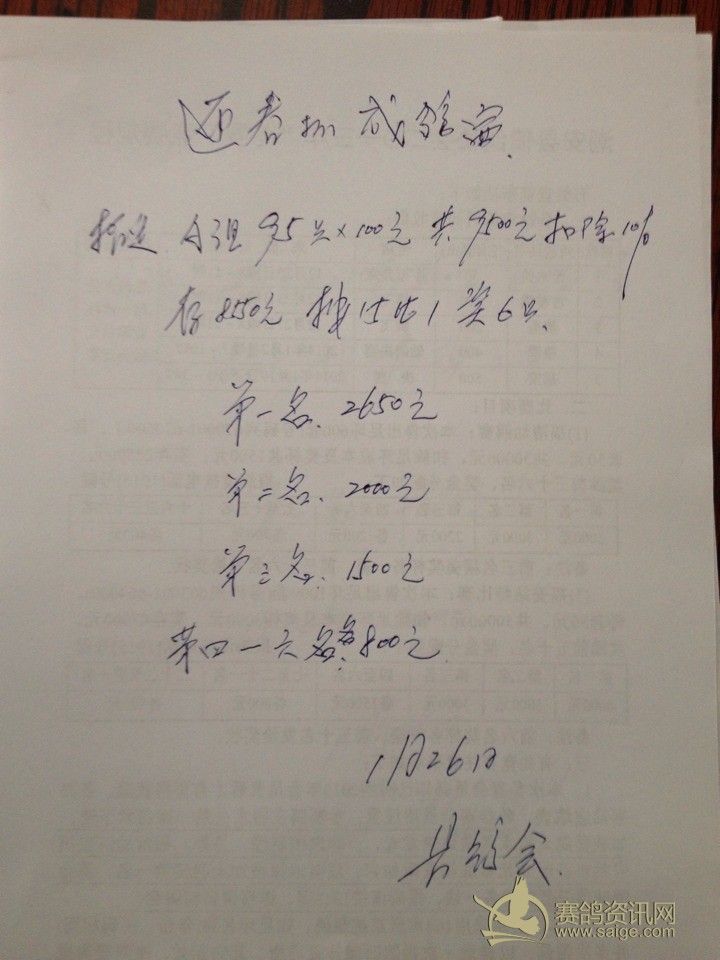 迎春杯成鸽赛
指定A组95只×100元共9500元扣除10%
存8550元 按15比1奖6只.
第一名. 2650元
第二名. 2000元
第三名. 1500元
第四一六名各800元
1月26日
县鸽会.
赛鸽资讯网
www.saige.com